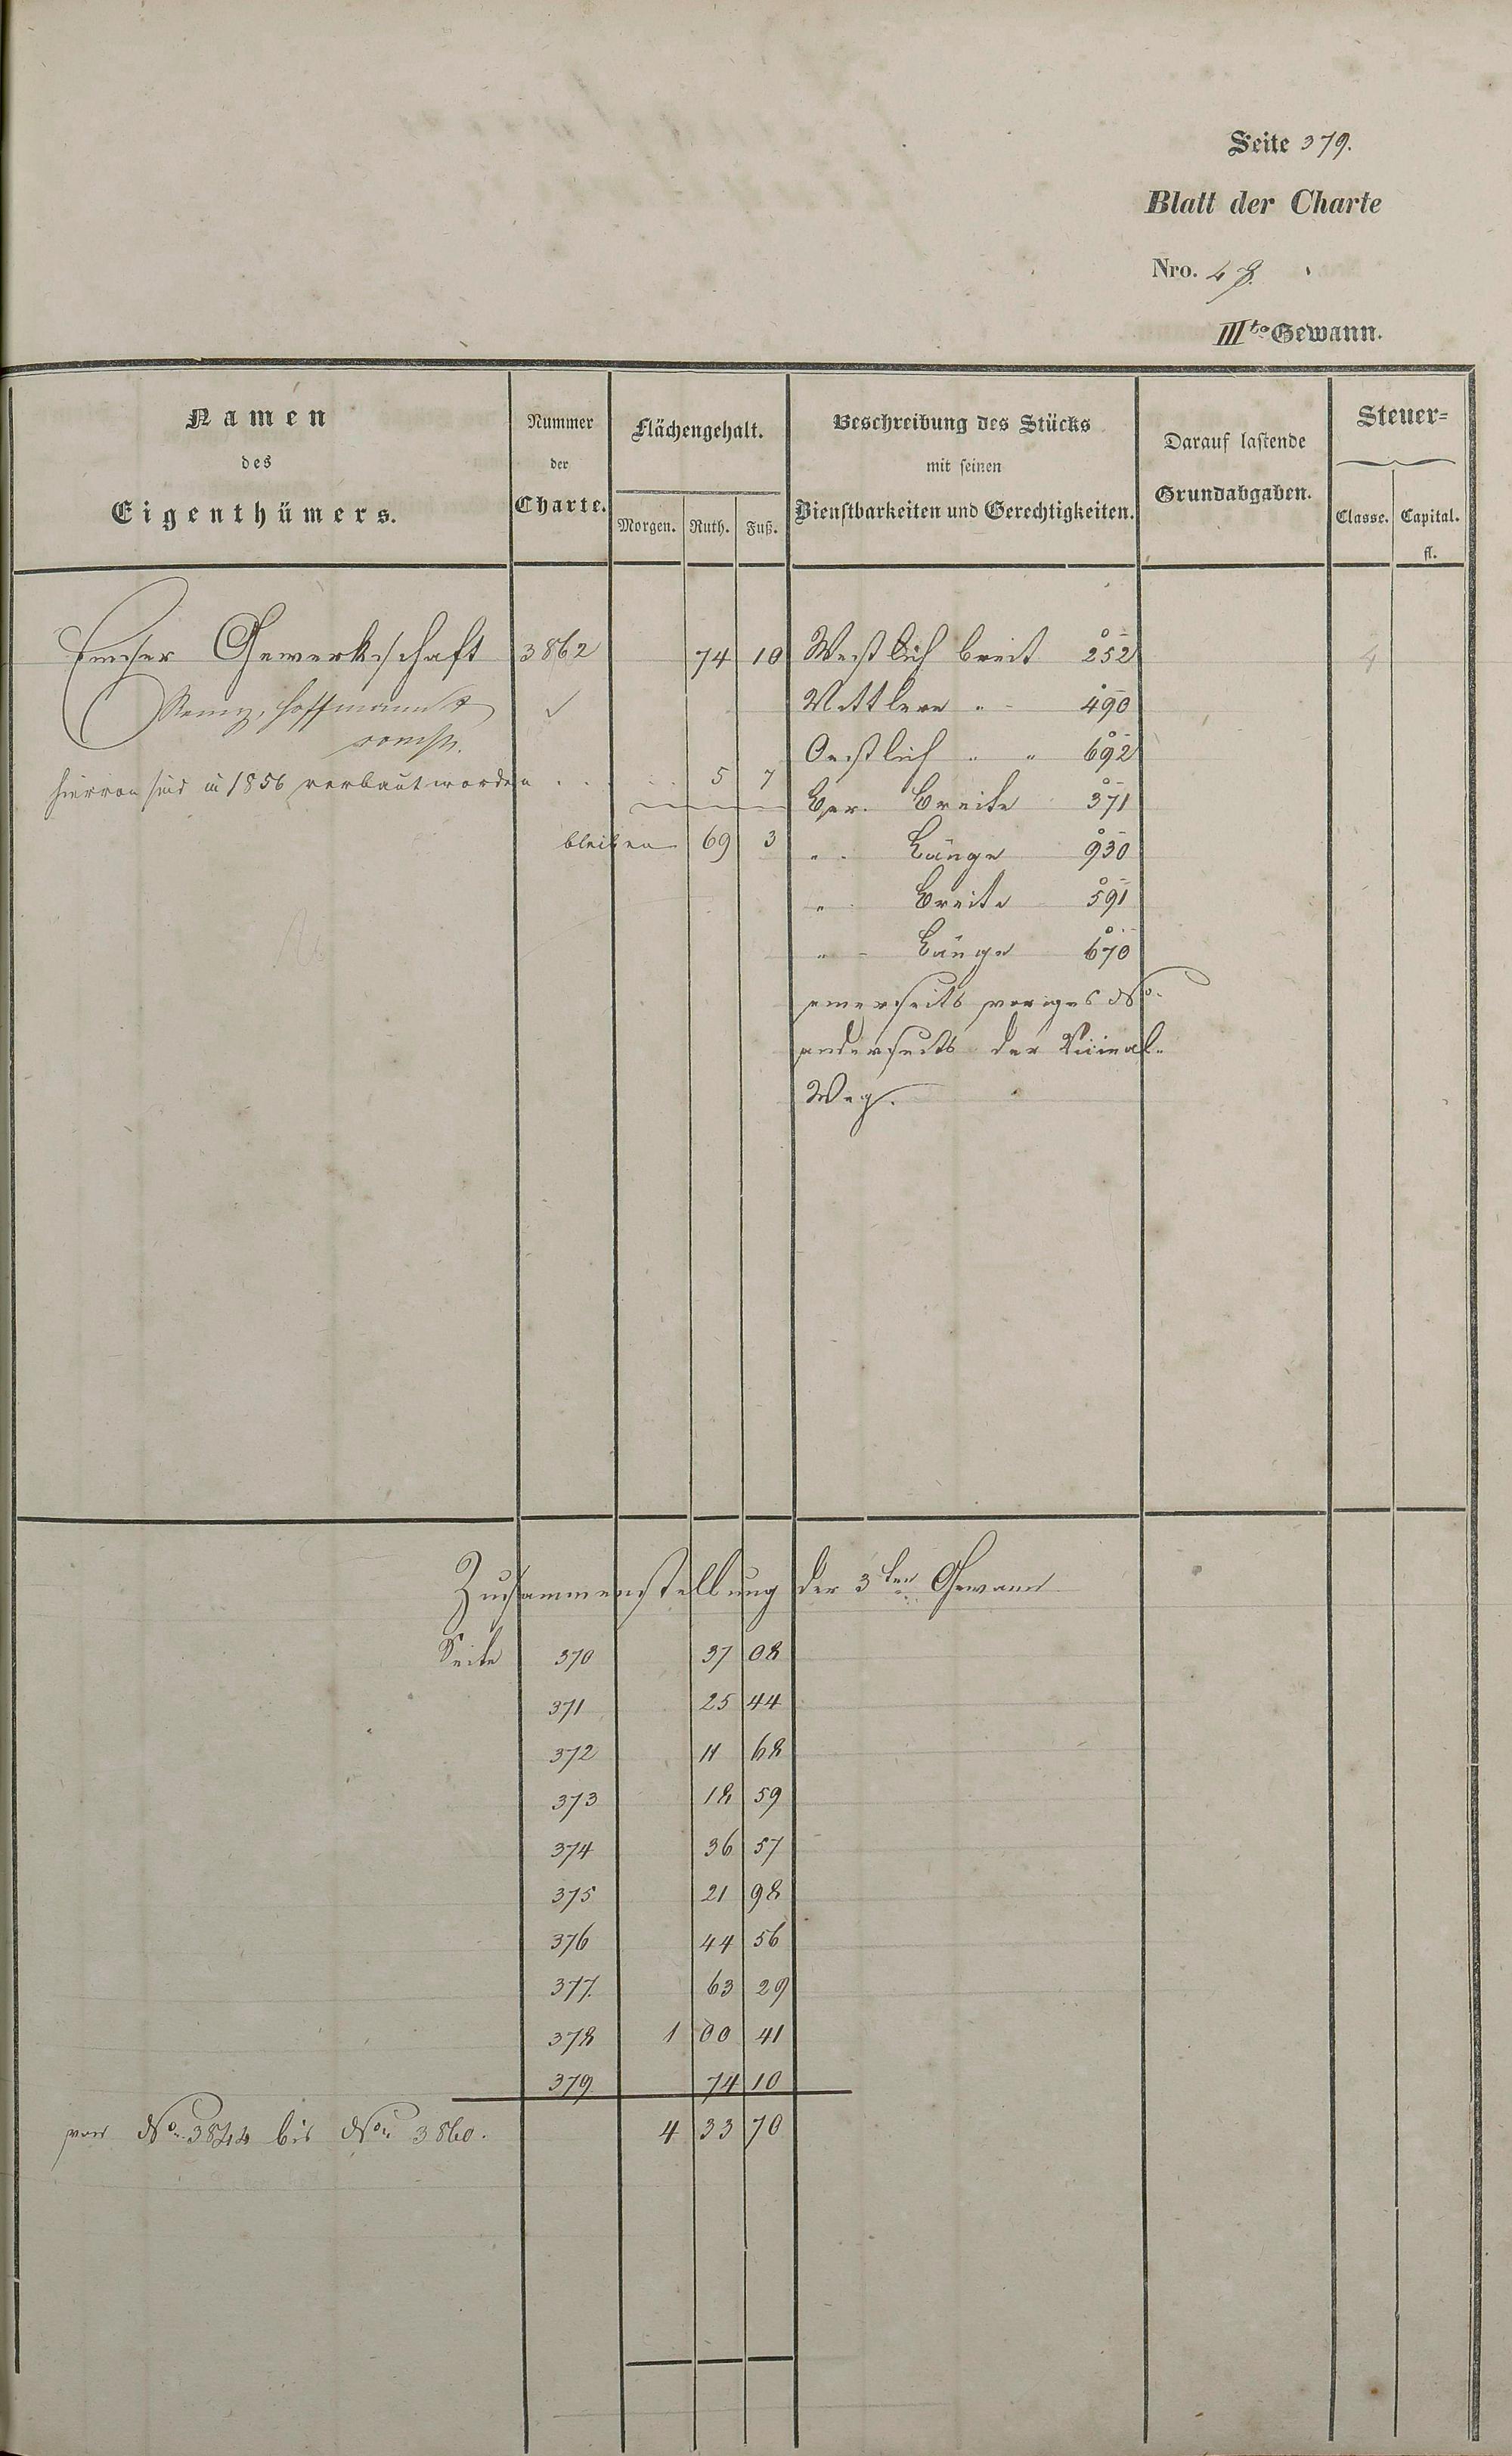 Seite 379.
Blatt der Charte
Nro. 48.
III te Gewann.
Namen des Eigenthümers.
Nummer der Charte.
Flächengehalt.
Morgen. Ruth. Fuß.
Beschreibung des Stücks mit seinen Dienstbarkeiten und Gerechtigkeiten.
Darauf lastende Grundabgaben.
Steuer=
Classe. Capital. fl.
Emser Gewerkschaft 3862 74 10 Westlich breit 252 4
Remy, Hoffmann & ✓ Mittlere " - 490
consn. Oestlich " " 692
hiervon sind in 1856 verbaut worden . . . . 5 7
Ger. Breite 371
bleiben 69 3 " Länge 930
" Breite 591
" Länge 670
einerseits voriges No.
anderseits der Vicinal-
Weg.
Zusammenstellung der 3ten Gewann
Seite 370 37 08
371 25 44
372 11 68
373 18 59
374 36 57
375 21 98
376 44 56
377. 63 29
378 1 00 41
379 74 10
von No. 3844 bis No. 3860. 4 33 70